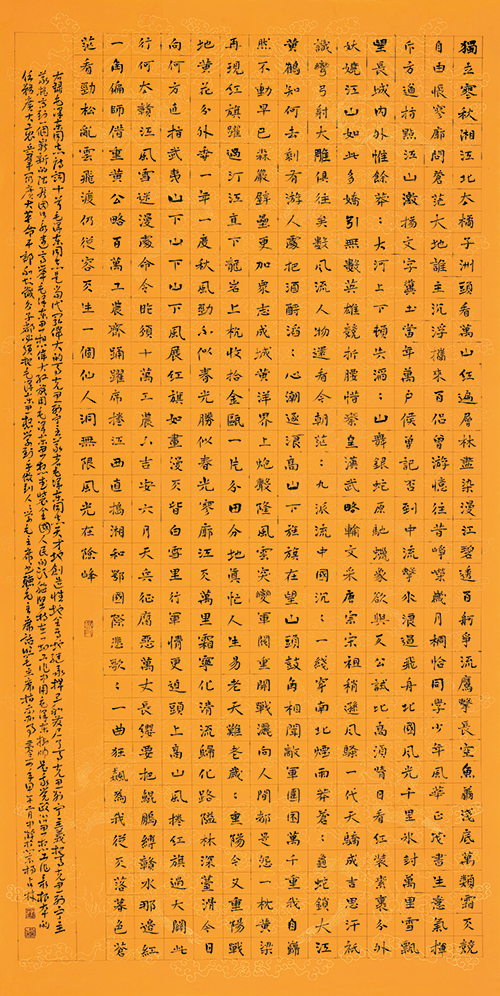 獨立寒秋湘江北去橘子洲頭看萬山紅遍層林盡染漫江碧透百舸爭流鷹擊長空魚翔淺底萬類霜天競
自由悵寥廓問蒼茫大地誰主沉浮攜來百侶曾游憶往昔崢嶸歲月稠恰同學少年風華正茂書生意氣揮
斥方遒指點江山激揚文字糞土當年萬戶侯曾記否到中流擊水浪遏飛舟北國風光千里冰封萬里雪飄
望長城內外惟餘莽：大河上下頓失滔：山舞銀蛇原馳蠟象欲與天公試比高須晴日看紅裝素裹分外
妖嬈江山如此多嬌引無數英雄競折腰惜秦皇漢武略輸文采唐宗宋祖稍遜風騷一代天驕成吉思汗祇
識彎弓射大雕俱往矣數風流人物還看今朝茫：九派流中國沉：一綫穿南北煙雨莽蒼：龜蛇鎖大江
黃鶴知何去剩有游人處把酒酹滔：心潮逐浪高山下旌旗在望山頭鼓角相聞敵軍圍困萬千重我自巋
然不動早已森嚴壁壘更加衆志成城黃洋界上炮聲隆風雲突變軍閥重開戰灑向人間都是怨一枕黃粱
再現紅旗躍過汀江直下龍岩上杭收拾金甌一片分田分地真忙人生易老天難老歲：重陽今又重陽戰
地黃花分外香一年一度秋風勁不似春光勝似春光寥廓江天萬里霜寧化清流歸化路隘林深苔滑今日
向何方直指武夷山下山下山下風展紅旗如畫漫天皆白雪里行軍情更迫頭上高山風捲紅旗過大關此
行何去贛江風雪迷漫處命令昨頒十萬工農下吉安六月天兵征腐惡萬丈長纓要把鯤鵬縛贛水那邊紅
一角偏師借重黃公略百萬工農齊踊躍席捲江西直搗湘和鄂國際悲歌：一曲狂飆為我從天落暮色蒼
茫看勁松亂雲飛渡仍從容天生一個仙人洞無限風光在險峰
右錄毛澤東同志詩詞十首毛澤東同志是當代最偉大的馬克思列寧主義者毛澤東同志天才地創造性地全面地繼承捍衛和發展了馬克思列寧主義把馬克思列寧主